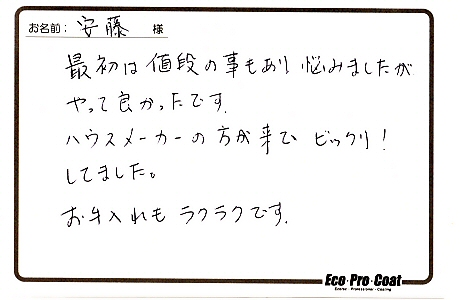 お名前: 安藤 様
最初は値段の事もあり悩みましたが
やって良かったです。
ハウスメーカーの方が来て ビックリ!
してました。
お手入れも ラクラクです。
Eco・Pro・Coat